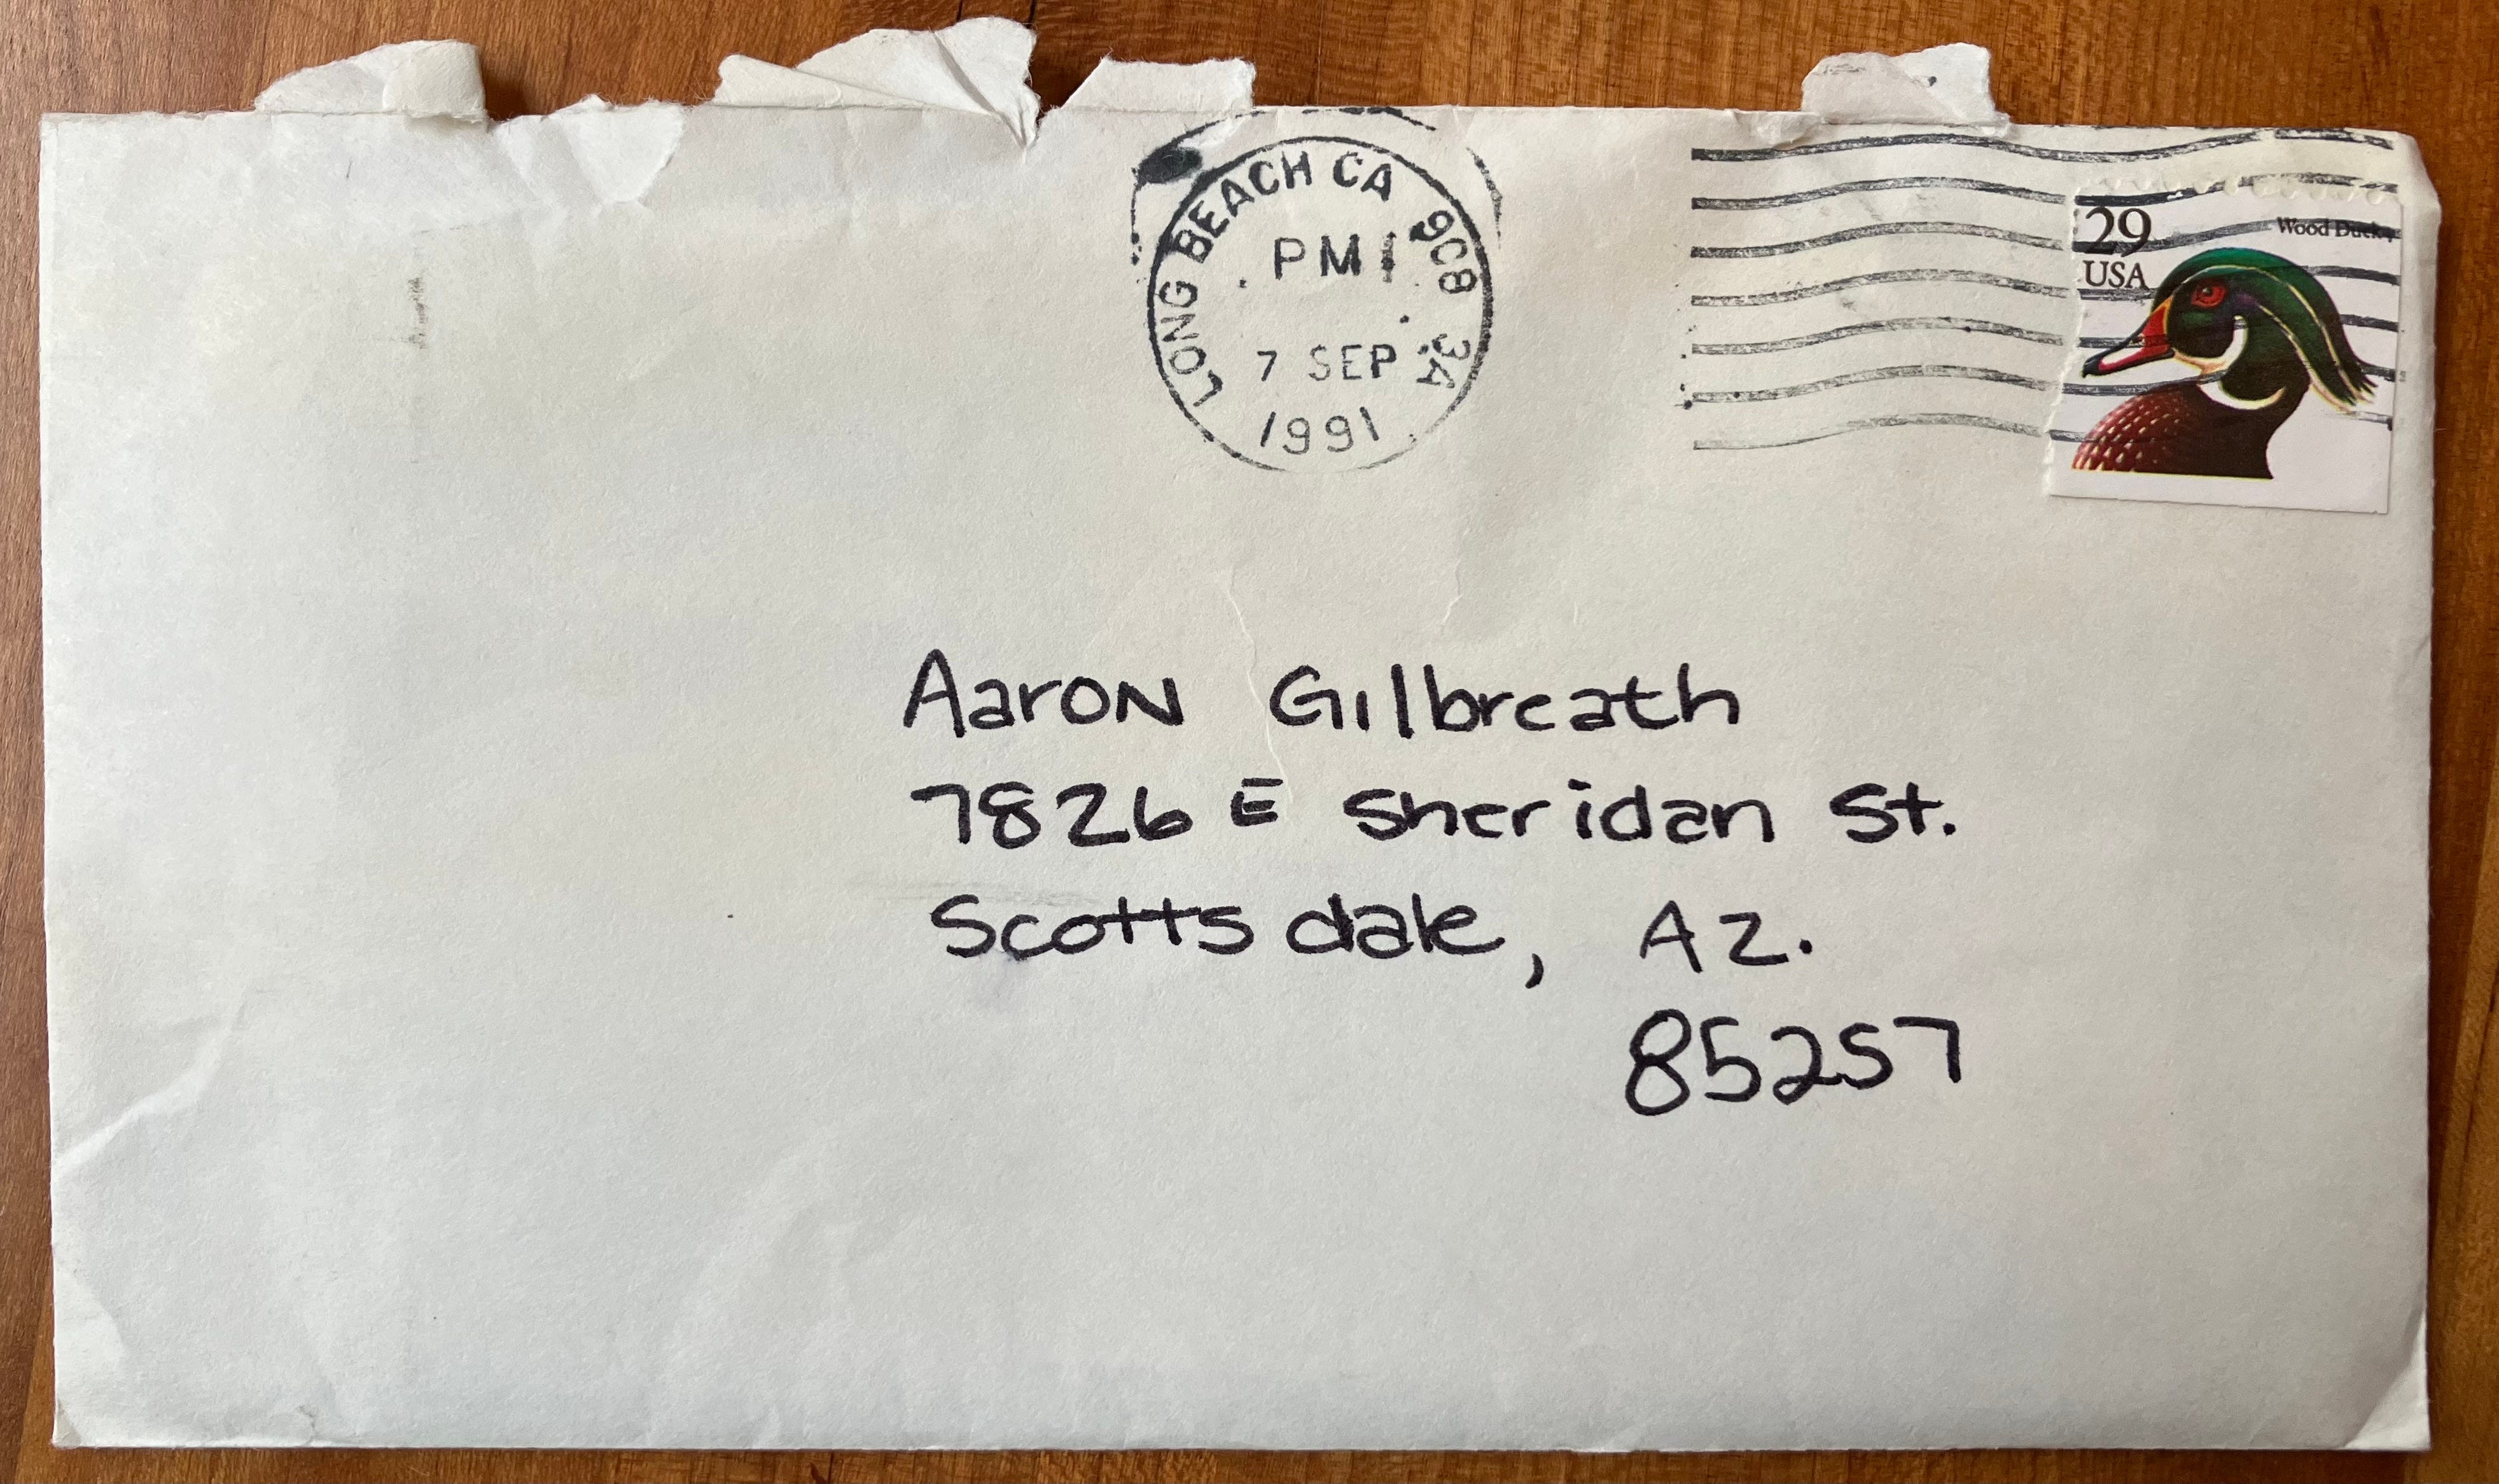 LONG BEACH CA 908 34
PM
7 SEP
1991
29
USA
Wood Duck
Aaron Gilbreath
7826 E Sheridan St.
Scottsdale, AZ.
85257